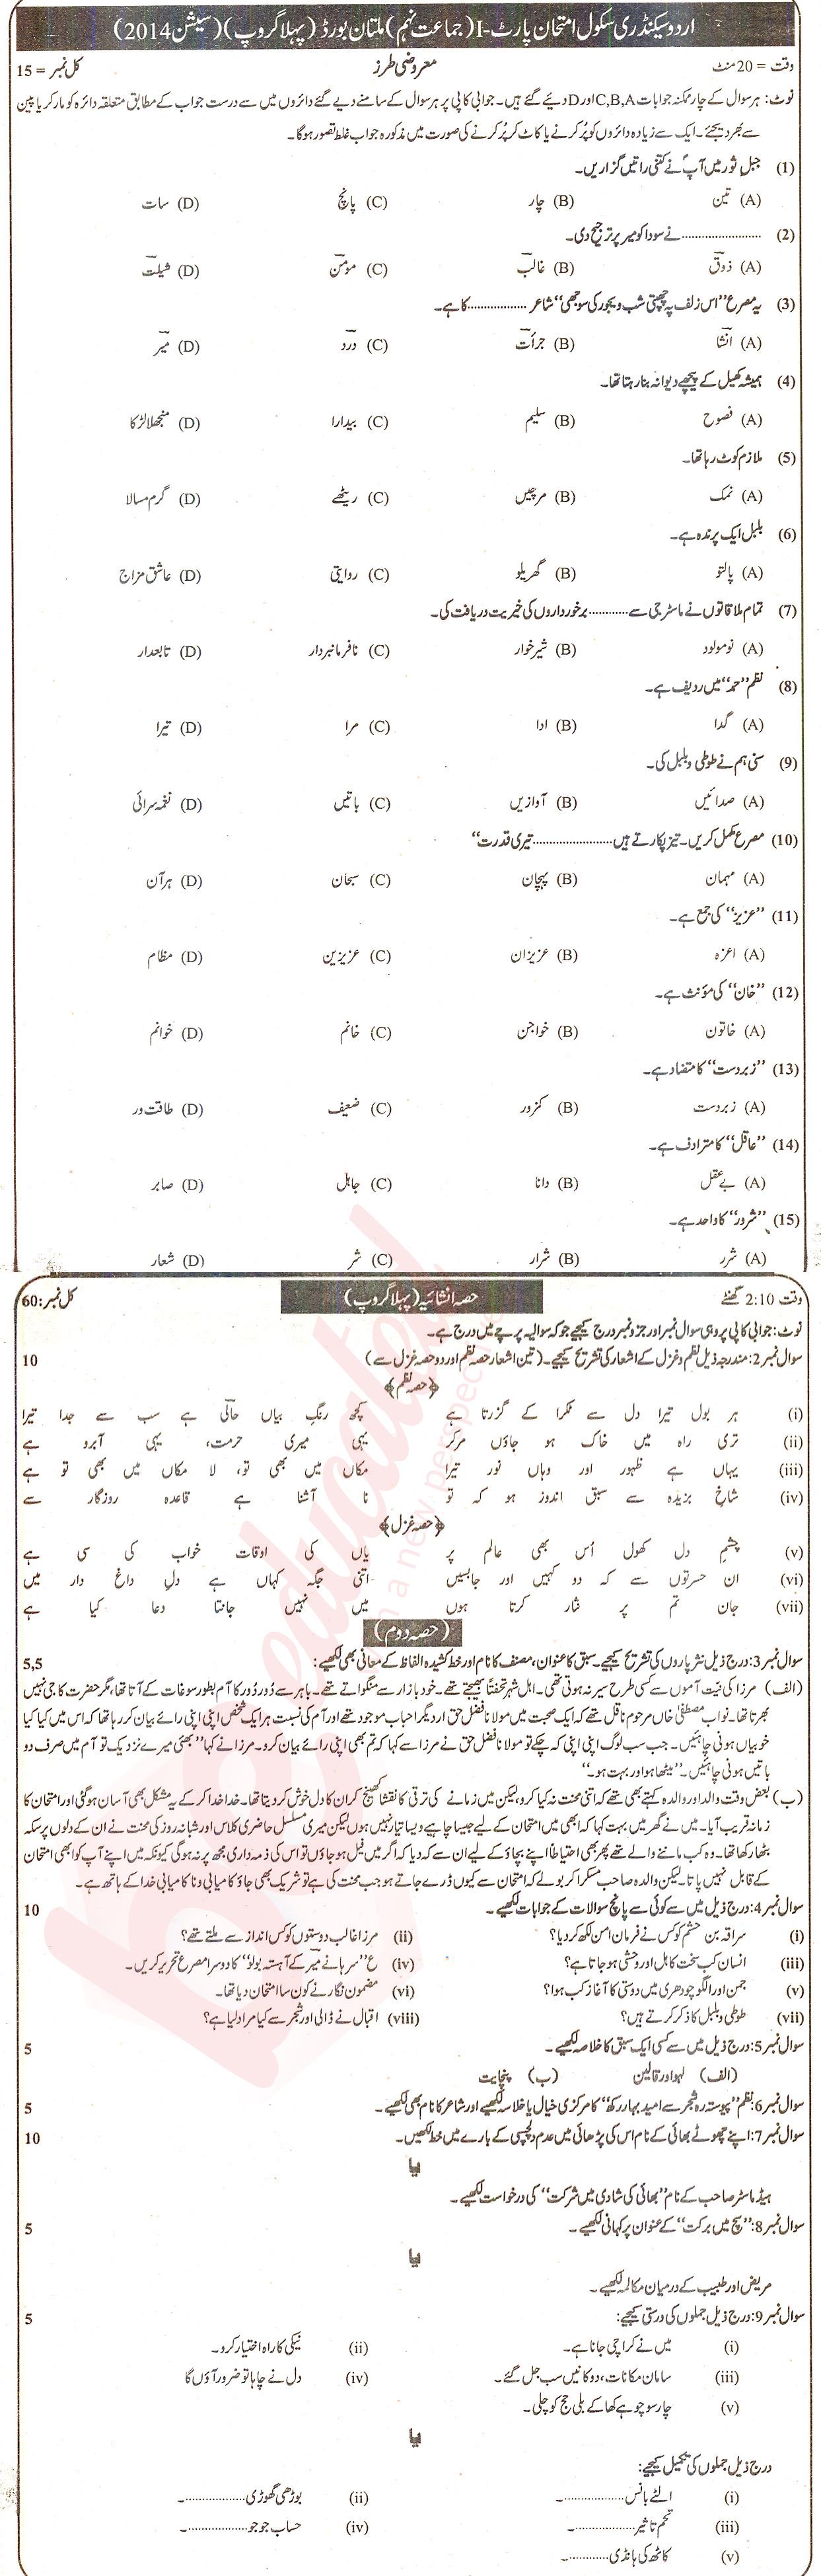 اردو سیکنڈری سکول امتحان پارٹ-I (جماعت نہم) ملتان بورڈ (پہلا گروپ) (سیشن 2014)
وقت = 20 منٹ معروضی طرز کل نمبر = 15
نوٹ: ہر سوال کے چار ممکنہ جوابات C,B,A اور D دیئے گئے ہیں۔ جوابی کاپی پر ہر سوال کے سامنے دیے گئے دائروں میں سے درست جواب کے مطابق متعلقہ دائرہ کو مارکر یا پین
سے بھر دیجئے۔ ایک سے زیادہ دائروں کو پُر کرنے یا کاٹ کر پُر کرنے کی صورت میں مذکورہ جواب غلط تصور ہوگا۔
(1) جبل ثور میں آپؐ نے کتنی راتیں گزاریں۔
(A) تین (B) چار (C) پانچ (D) سات
(2) ...................... نے سودا کو میر پر ترجیح دی۔
(A) ذوقؔ (B) غالبؔ (C) مومنؔ (D) شیلتؔ
(3) یہ مصرع "اس زلف پہ پھبتی شب دیجور کی سوجھی" شاعر ................ کا ہے۔
(A) انشاؔ (B) جرأتؔ (C) دردؔ (D) میرؔ
(4) ہمیشہ کھیل کے پیچھے دیوانہ بنا رہتا تھا۔
(A) فصوح (B) سلیم (C) بیدارا (D) منجھلا لڑکا
(5) ملازم کوٹ رہا تھا۔
(A) نمک (B) مرچیں (C) ریٹھے (D) گرم مسالا
(6) بلبل ایک پرندہ ہے۔
(A) پالتو (B) گھریلو (C) روایتی (D) عاشق مزاج
(7) تمام ملاقاتوں نے ماسٹر جی سے ........... برخورداروں کی خیریت دریافت کی۔
(A) نومولود (B) شیر خوار (C) نافرمانبردار (D) تابعدار
(8) نظم "حمد" میں ردیف ہے۔
(A) گدا (B) ادا (C) مرا (D) تیرا
(9) سنی ہم نے طوطی و بلبل کی۔
(A) صدائیں (B) آوازیں (C) باتیں (D) نغمہ سرائی
(10) مصرع مکمل کریں۔ تیز پکارتے ہیں ...................... تیری قدرت"
(A) مہمان (B) پہچان (C) سبحان (D) ہر آن
(11) "عزیز" کی جمع ہے۔
(A) اعزہ (B) عزیزان (C) عزیزین (D) مظام
(12) "خان" کی مؤنث ہے۔
(A) خاتون (B) خواجن (C) خانم (D) خوانم
(13) "زبردست" کا متضاد ہے۔
(A) زبردست (B) کمزور (C) ضعیف (D) طاقت ور
(14) "عاقل" کا مترادف ہے۔
(A) بے عقل (B) دانا (C) جاہل (D) صابر
(15) "شرور" کا واحد ہے۔
(A) شرر (B) شرار (C) شر (D) شعار
وقت 2:10 گھنٹے حصہ انشائیہ (پہلا گروپ) کل نمبر: 60
نوٹ: جوابی کاپی پر وہی سوال نمبر اور جزو نمبر درج کیجیے جو کہ سوالیہ پرچے میں درج ہے۔
سوال نمبر 2: مندرجہ ذیل نظم و غزل کے اشعار کی تشریح کیجیے۔ (تین اشعار حصہ نظم اور دو حصہ غزل سے) 10
﴿حصہ نظم﴾
(i) ہر بول تیرا دل سے ٹکرا کے گزرتا ہے کچھ رنگِ بیاں حالیؔ ہے سب سے جدا تیرا
(ii) تری راہ میں خاک ہو جاؤں مرکر یہی میری حرمت، یہی آبرو ہے
(iii) یہاں ہے ظہور اور وہاں نور تیرا مکاں میں بھی تو، لا مکاں میں بھی تو ہے
(iv) شاخِ بریدہ سے سبق اندوز ہو کہ تو نا آشنا ہے قاعدہ روزگار سے
﴿حصہ غزل﴾
(v) چشمِ دل کھول اُس بھی عالم پر یاں کی اوقات خواب کی سی ہے
(vi) ان حسرتوں سے کہ دو کہیں اور جا بسیں اتنی جگہ کہاں ہے دلِ داغ دار میں
(vii) جان تم پر نثار کرتا ہوں میں نہیں جانتا دعا کیا ہے
(حصہ دوم)
سوال نمبر 3: درج ذیل نثر پاروں کی تشریح کیجیے۔ سبق کا عنوان، مصنف کا نام اور خط کشیدہ الفاظ کے معانی بھی لکھیے: 5,5
(الف) مرزا کی نیت آموں سے کسی طرح سیر نہ ہوتی تھی۔ اہل شہر تحفتاً بھیجتے تھے۔ خود بازار سے منگواتے تھے۔ باہر سے دُور دُور کا آم بطور سوغات کے آتا تھا، مگر حضرت کا جی نہیں
بھرتا تھا۔ نواب مصطفیٰ خاں مرحوم ناقل تھے کہ ایک صحبت میں مولانا فضل حق اور دیگر احباب موجود تھے اور آم کی نسبت ہر ایک شخص اپنی اپنی رائے بیان کر رہا تھا کہ اس میں کیا کیا
خوبیاں ہونی چاہئیں۔ جب سب لوگ اپنی اپنی کہہ چکے تو مولانا فضل حق نے مرزا سے کہا کہ تم بھی اپنی رائے بیان کرو۔ مرزا نے کہا "بھئی میرے نزدیک تو آم میں صرف دو
باتیں ہونی چاہئیں۔ "میٹھا ہو اور بہت ہو۔"
(ب) بعض وقت والد اور والدہ کہتے بھی تھے کہ اتنی محنت نہ کیا کرو، لیکن میں زمانے کی ترقی کا نقشا کھینچ کر ان کا دل خوش کر دیتا تھا۔ خدا خدا کر کے یہ مشکل بھی آسان ہوگئی اور امتحان کا
زمانہ قریب آیا۔ میں نے گھر میں بہت کہا کہ ابھی میں امتحان کے لیے جیسا چاہیے ویسا تیار نہیں ہوں لیکن میری مسلسل حاضری کلاس اور شبانہ روز کی محنت نے ان کے دلوں پر سکہ
بٹھا رکھا تھا۔ وہ کب ماننے والے تھے پھر بھی احتیاطاً اپنے بچاؤ کے لیے ان سے کہہ دیا کہ اگر میں فیل ہو جاؤں تو اس کی ذمہ داری مجھ پر نہ ہوگی کیونکہ میں اپنے آپ کو ابھی امتحان
کے قابل نہیں پاتا۔ لیکن والدہ صاحب مسکرا کر بولے کہ امتحان سے کیوں ڈرے جاتے ہو جب محنت کی ہے تو شریک بھی ہو جاؤ کامیابی و ناکامیابی خدا کے ہاتھ ہے۔
سوال نمبر 4: درج ذیل میں سے کوئی سے پانچ سوالات کے جوابات لکھیے۔ 10
(i) سراقہ بن جعشم کو کس نے فرمان امن لکھ کر دیا؟ (ii) مرزا غالب دوستوں کو کس انداز سے ملتے تھے؟
(iii) انسان کب سخت کاہل اور وحشی ہو جاتا ہے؟ (iv) ع "سرہانے میرؔ کے آہستہ بولو" کا دوسرا مصرع تحریر کریں۔
(v) جمن اور الگو چودھری میں دوستی کا آغاز کب ہوا؟ (vi) مضمون نگار نے کون سا امتحان دیا تھا۔
(vii) طوطی و بلبل کا ذکر کرتے ہیں؟ (viii) اقبال نے ڈالی اور شجر سے کیا مراد لیا ہے؟
سوال نمبر 5: درج ذیل میں سے کسی ایک سبق کا خلاصہ لکھیے۔ 5
(الف) لہو اور قالین (ب) پنچایت
سوال نمبر 6: نظم "پیوستہ رہ شجر سے امید بہار رکھ" کا مرکزی خیال یا خلاصہ لکھیے اور شاعر کا نام بھی لکھیے۔ 5
سوال نمبر 7: اپنے چھوٹے بھائی کے نام اس کی پڑھائی میں عدم دلچسپی کے بارے میں خط لکھیں۔ 10
یا
ہیڈ ماسٹر صاحب کے نام "بھائی کی شادی میں شرکت" کی درخواست لکھیے۔
سوال نمبر 8: "سچ میں برکت" کے عنوان پر کہانی لکھیے۔ 5
یا
مریض اور طبیب کے درمیان مکالمہ لکھیے۔
سوال نمبر 9: درج ذیل جملوں کی درستی کیجیے: 5
(i) میں نے کراچی جانا ہے۔ (ii) نیکی کا راہ اختیار کرو۔
(iii) سامان مکانات، دوکانیں سب جل گئے۔ (iv) دل نے چاہا تو ضرور آؤں گا
(v) چار سو چوہے کھا کے بلی حج کو چلی۔
یا
درج ذیل جملوں کی تکمیل کیجیے:
(i) الٹے بانس ................۔ (ii) بوڑھی گھوڑی ................۔
(iii) تخم تاثیر ................۔ (iv) حساب جو جو ................۔
(v) کاٹھ کی ہانڈی ...........۔